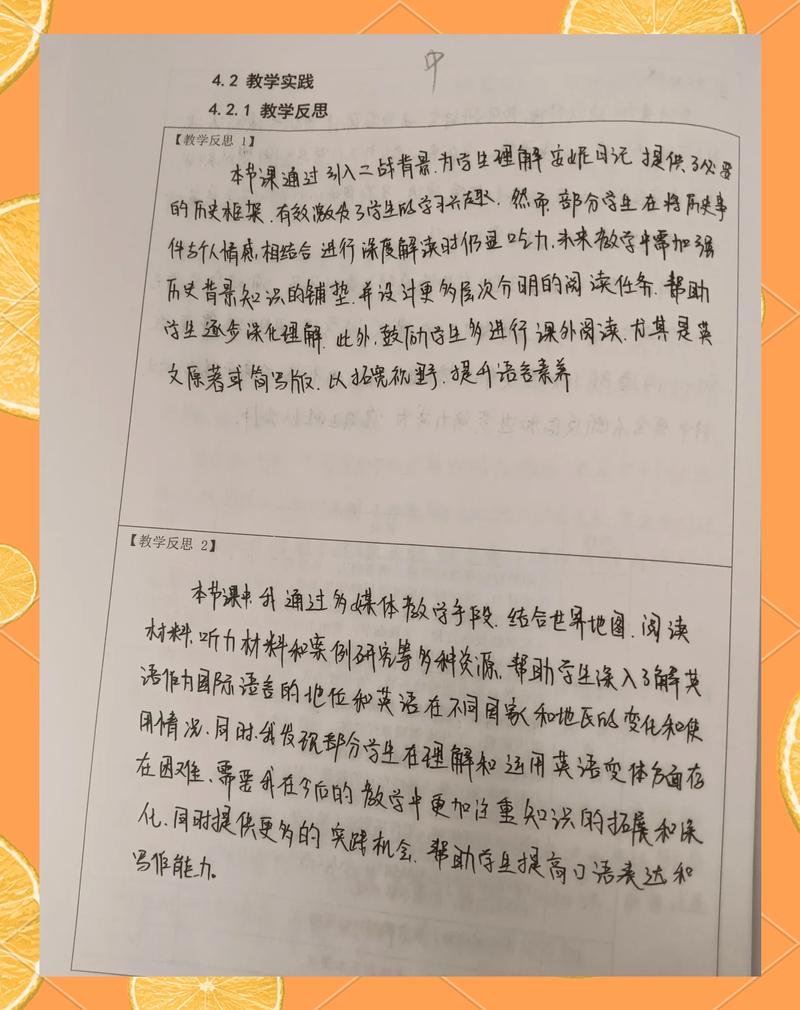 中
4.2 教学实践
4.2.1 教学反思
【教学反思 1】
本节课通过引入二战背景.为学生理解安妮日记提供了必要
的历史框架.有效激发了学生的学习兴趣.然而.部分学生在将历史事
件与个人情感相结合进行深度解读时仍显吃力.未来教学中需加强
历史背景知识的铺垫.并设计更多层次分明的阅读任务.帮助
学生逐步深化理解.此外,鼓励学生多进行课外阅读.尤其是英
文原著或简写版.以拓宽视野.提升语言素养
【教学反思 2】
本节课中.我通过多媒体教学手段.结合世界地图.阅读
材料.听力材料和案例研究等多种资源.帮助学生深入了解英
语作为国际语言的地位和英语在不同国家和地区的变化和使
用情况.同时.我发现部分学生在理解和运用英语变体方面存
在困难.需要我在今后的教学中更加注重知识的拓展和深
化.同时提供更多的实践机会.帮助学生提高口语表达和
写作能力。